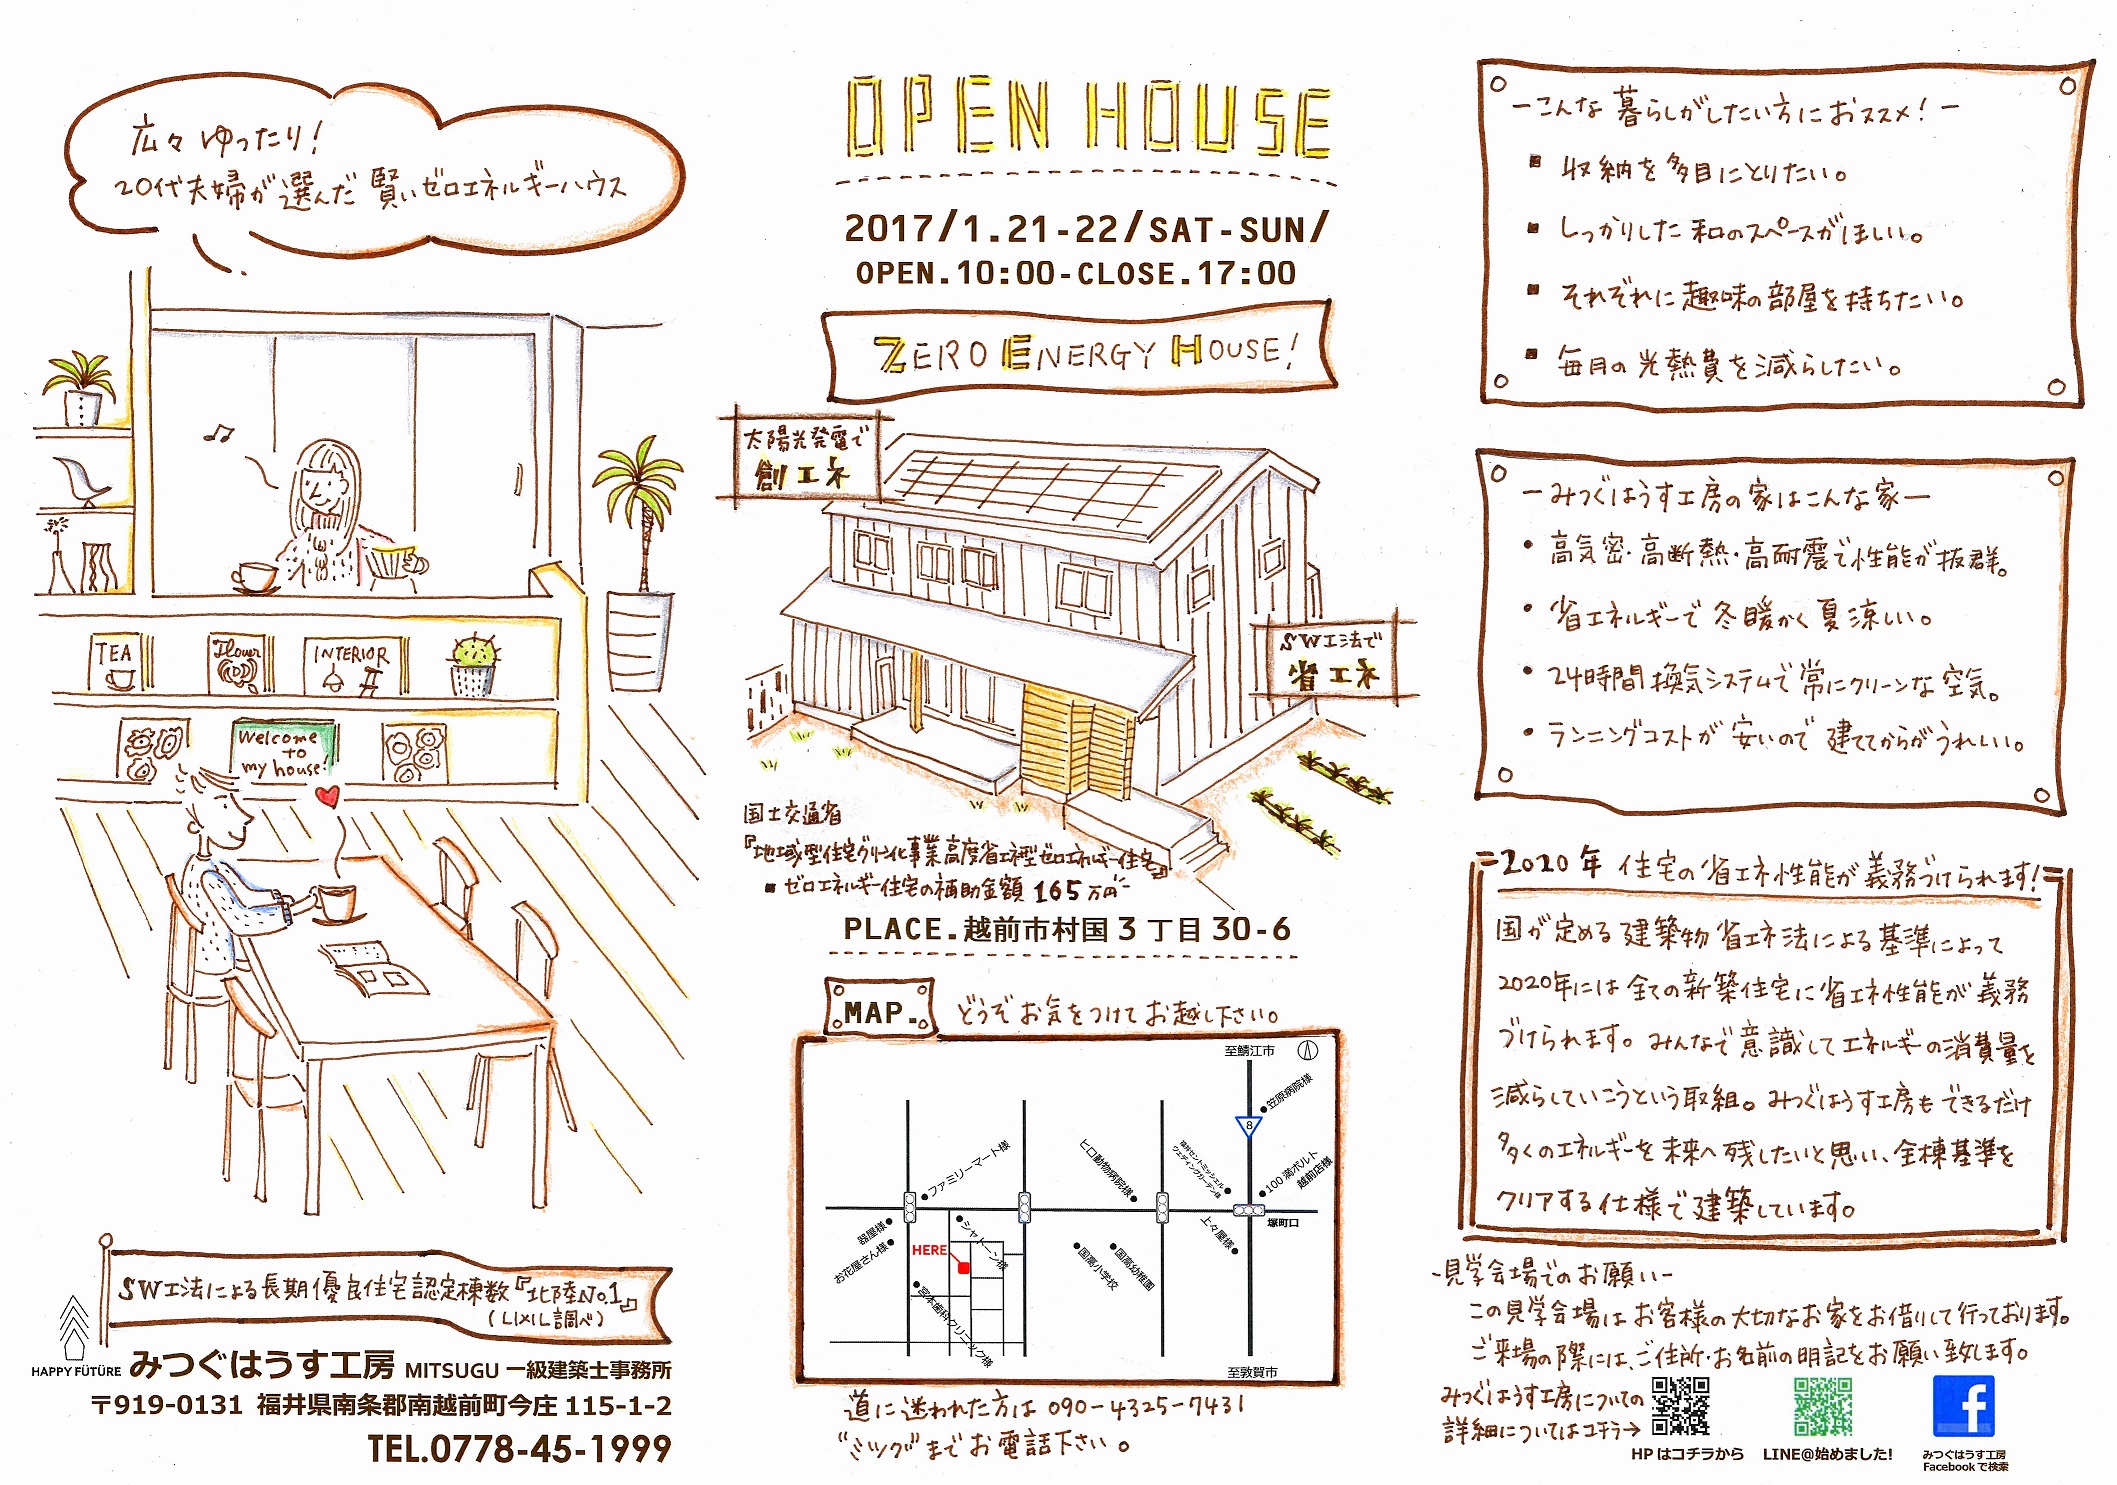 広々ゆったり!
20代夫婦が選んだ賢いゼロエネルギーハウス
TEA
Flower
INTERIOR
Welcome
to
my house!
SW工法による長期優良住宅認定棟数『北陸No.1』
(LIXIL調べ)
HAPPY FÜTÜRE
みつぐはうす工房 MITSUGU 一級建築士事務所
〒919-0131 福井県南条郡南越前町今庄 115-1-2
TEL.0778-45-1999
OPEN HOUSE
2017/1.21-22/SAT-SUN/
OPEN.10:00-CLOSE.17:00
ZERO ENERGY HOUSE!
太陽光発電で
創エネ
SW工法で
省エネ
国土交通省
『地域型住宅グリーン化事業高度省エネ型ゼロエネルギー住宅』
■ ゼロエネルギー住宅の補助金額 165万円
PLACE.越前市村国3丁目30-6
MAP.
どうぞお気をつけてお越し下さい。
至鯖江市
笠原病院様
8
ファミリーマート様
ヒロ動物病院様
福井セントミッシェル
ウェディングガーデン様
100満ボルト
越前店様
塚町口
器屋様
お花屋さん様
HERE
シャトーン様
宮本歯科クリニック様
国高小学校
国高幼稚園
上々屋様
至敦賀市
道に迷われた方は 090-4325-7431
"ミツグ"までお電話下さい。
-こんな暮らしがしたい方におススメ!-
■ 収納を多目にとりたい。
■ しっかりした和のスペースがほしい。
■ それぞれに趣味の部屋を持ちたい。
■ 毎月の光熱費を減らしたい。
-みつぐはうす工房の家はこんな家-
・高気密・高断熱・高耐震で性能が抜群。
・省エネルギーで冬暖かく夏涼しい。
・24時間換気システムで常にクリーンな空気。
・ランニングコストが安いので建ててからがうれしい。
=2020年 住宅の省エネ性能が義務づけられます!=
国が定める建築物省エネ法による基準によって
2020年には全ての新築住宅に省エネ性能が義務
づけられます。みんなで意識してエネルギーの消費量を
減らしていこうという取組。みつぐはうす工房もできるだけ
多くのエネルギーを未来へ残したいと思い、全棟基準を
クリアする仕様で建築しています。
-見学会場でのお願い-
この見学会場はお客様の大切なお家をお借りして行っております。
ご来場の際には、ご住所・お名前の明記をお願い致します。
みつぐはうす工房についての
詳細についてはコチラ→
HPはコチラから
LINE@始めました!
f
みつぐはうす工房
Facebookで検索